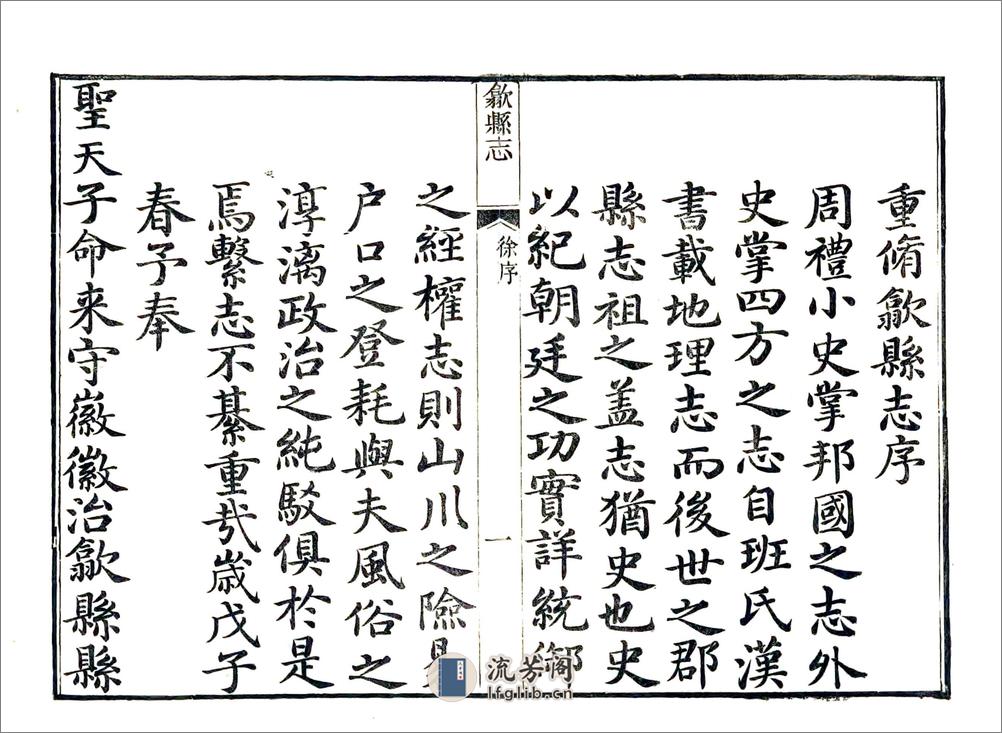 重脩歙縣志序
周禮小史掌邦國之志外
史掌四方之志自班氏漢
書載地理志而後世之郡
縣志祖之盖志猶史也史
以紀朝廷之功實詳統
歙縣志
徐序
一
之經權志則山川之險
户口之登耗與夫風俗之
淳漓政治之純駁俱於是
焉繫志不綦重㢤歲戊子
春予奉
聖天子命来守徽徽治歙縣縣
流芳阁
lfglib.cn